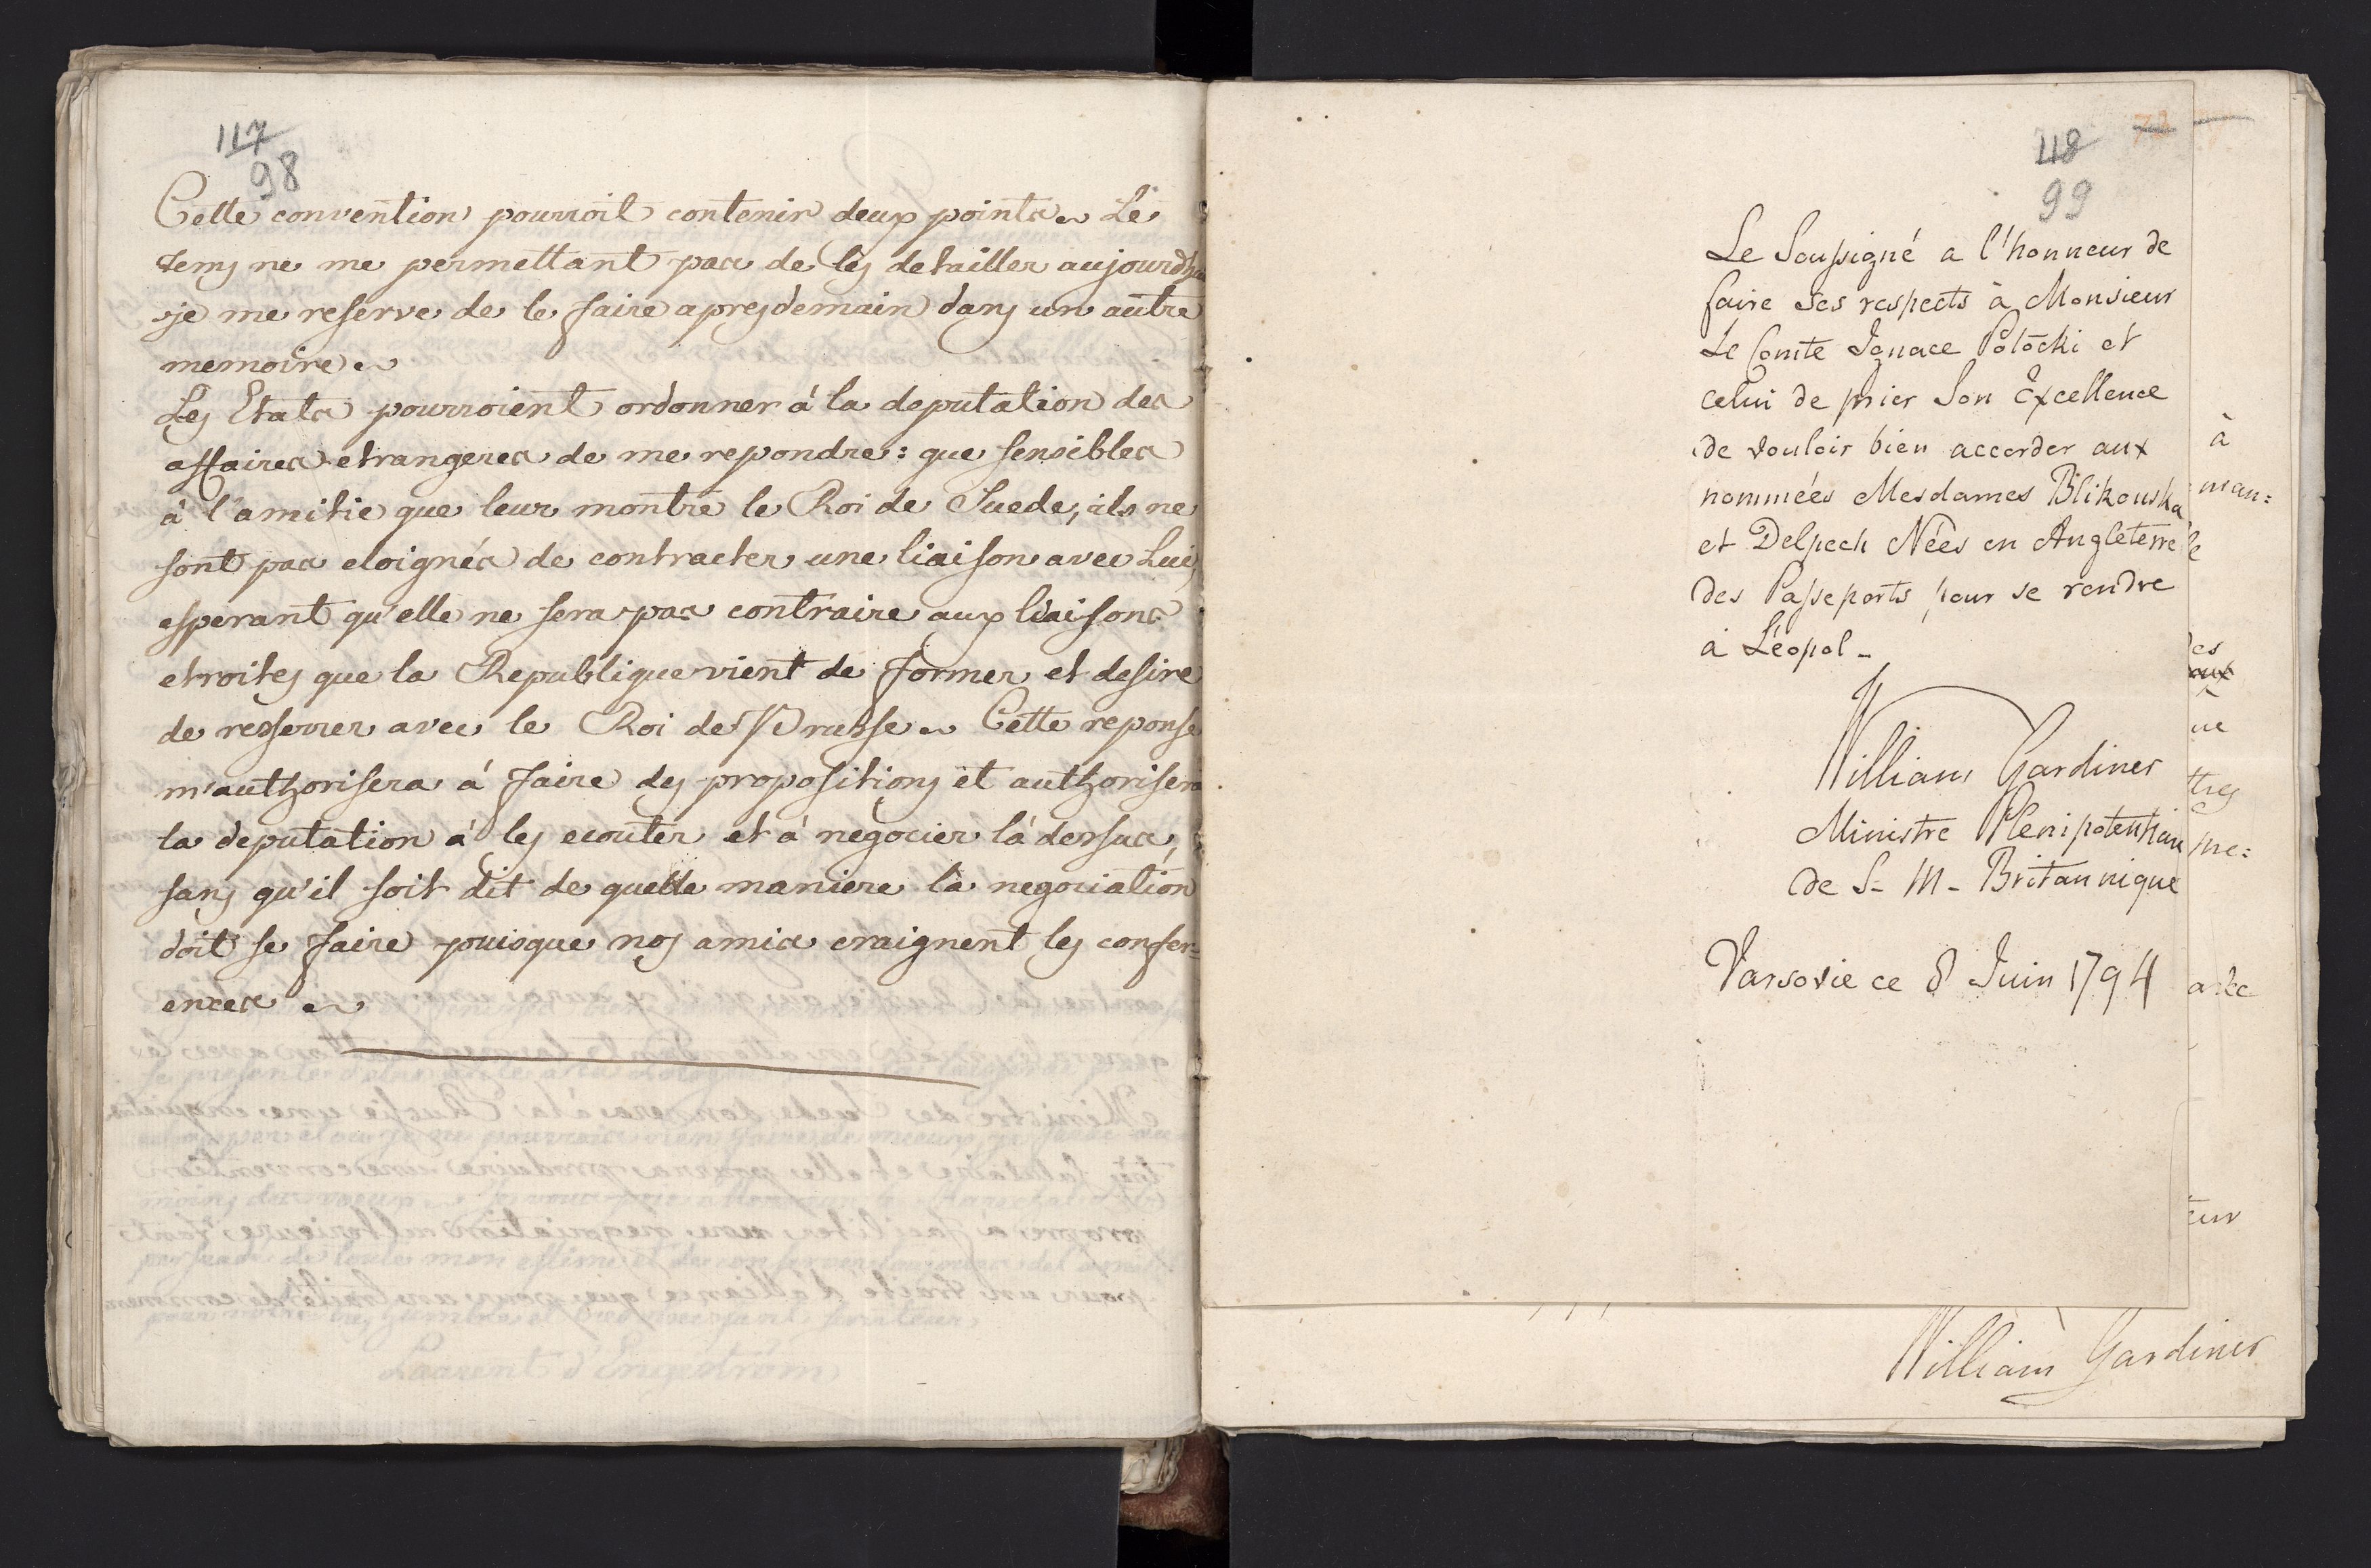 117
98
Cette convention pourroit contenir deux points. Le
tems ne me permettant pas de les detailler aujourdhui
je me reserve de le faire apresdemain dans un autre
memoire.
Les Etats pourroient ordonner à la deputation des
affaires etrangeres de me repondre: que sensibles
à l'amitie que leur montre le Roi de Suede, ils ne
sont pas eloignés de contracter une liaison avec Lui,
esperant qu'elle ne sera pas contraire aux liaisons
etroites que la Republique vient de former et desire
de resserrer avec le Roi de Prusse. Cette reponse
m'authorisera à faire des propositions et authorisera
la deputation à les ecouter et à negocier là dessus,
sans qu'il soit dit de quelle maniere la negociation
doit se faire puisque nos amis craignent les confer=
ences.
Laurent d'Engeström
118
99
Le Soussigné a l'honneur de
faire ses respects à Monsieur
Le Comte Ignace Potocki et
celui de prier Son Excellence
de vouloir bien accorder aux
nommées Mesdames Blikouska
et Delpech Nées en Angleterre
des Passeports pour se rendre
à Léopol -
William Gardiner
Ministre Plenipotentiaire
de S- M- Britannique
Varsovie ce 8 Juin 1794
à
man=
le
es
aux
ue
tres
me:
avec
eur
William Gardiner